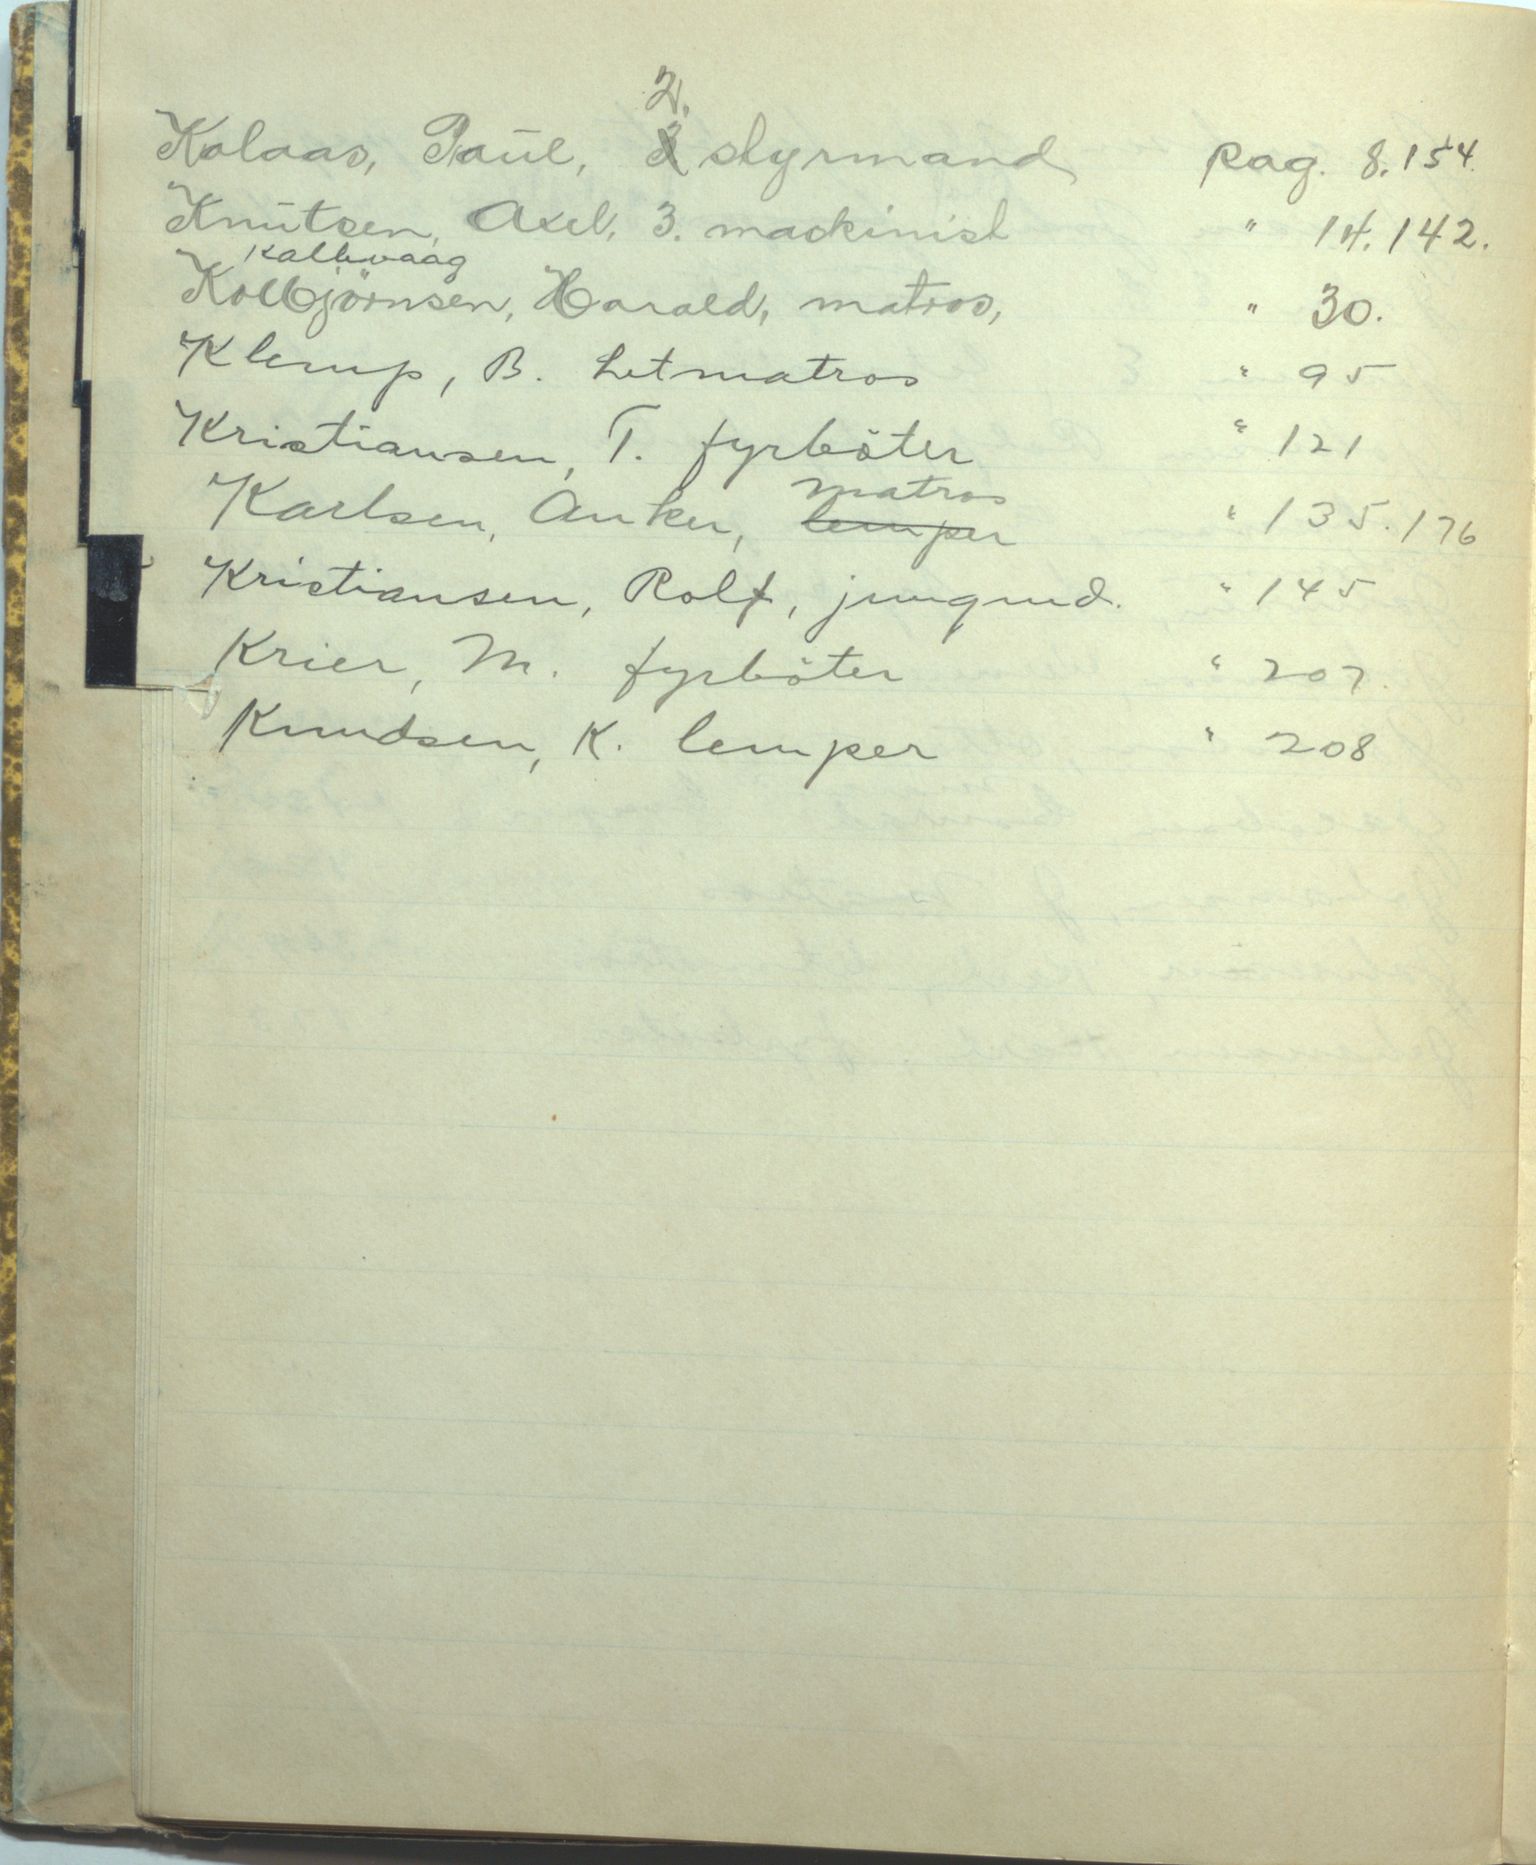 2.
Kolaas, Paul, 3 styrmand pag. 8. 154.
Knutsen, Axel, 3. maskinist " 14. 142.
Kalhvaag
Kolbjörnsen, Harald, matros, " 30.
Klemp, B. Letmatros " 95
Kristiansen, T. fyrböter " 121
matros
Karlsen, Anker, lemper " 135. 176
Kristiansen, Rolf, jungmd. " 145
Krier, M. fyrböter " 207.
Knudsen, K. lemper " 208